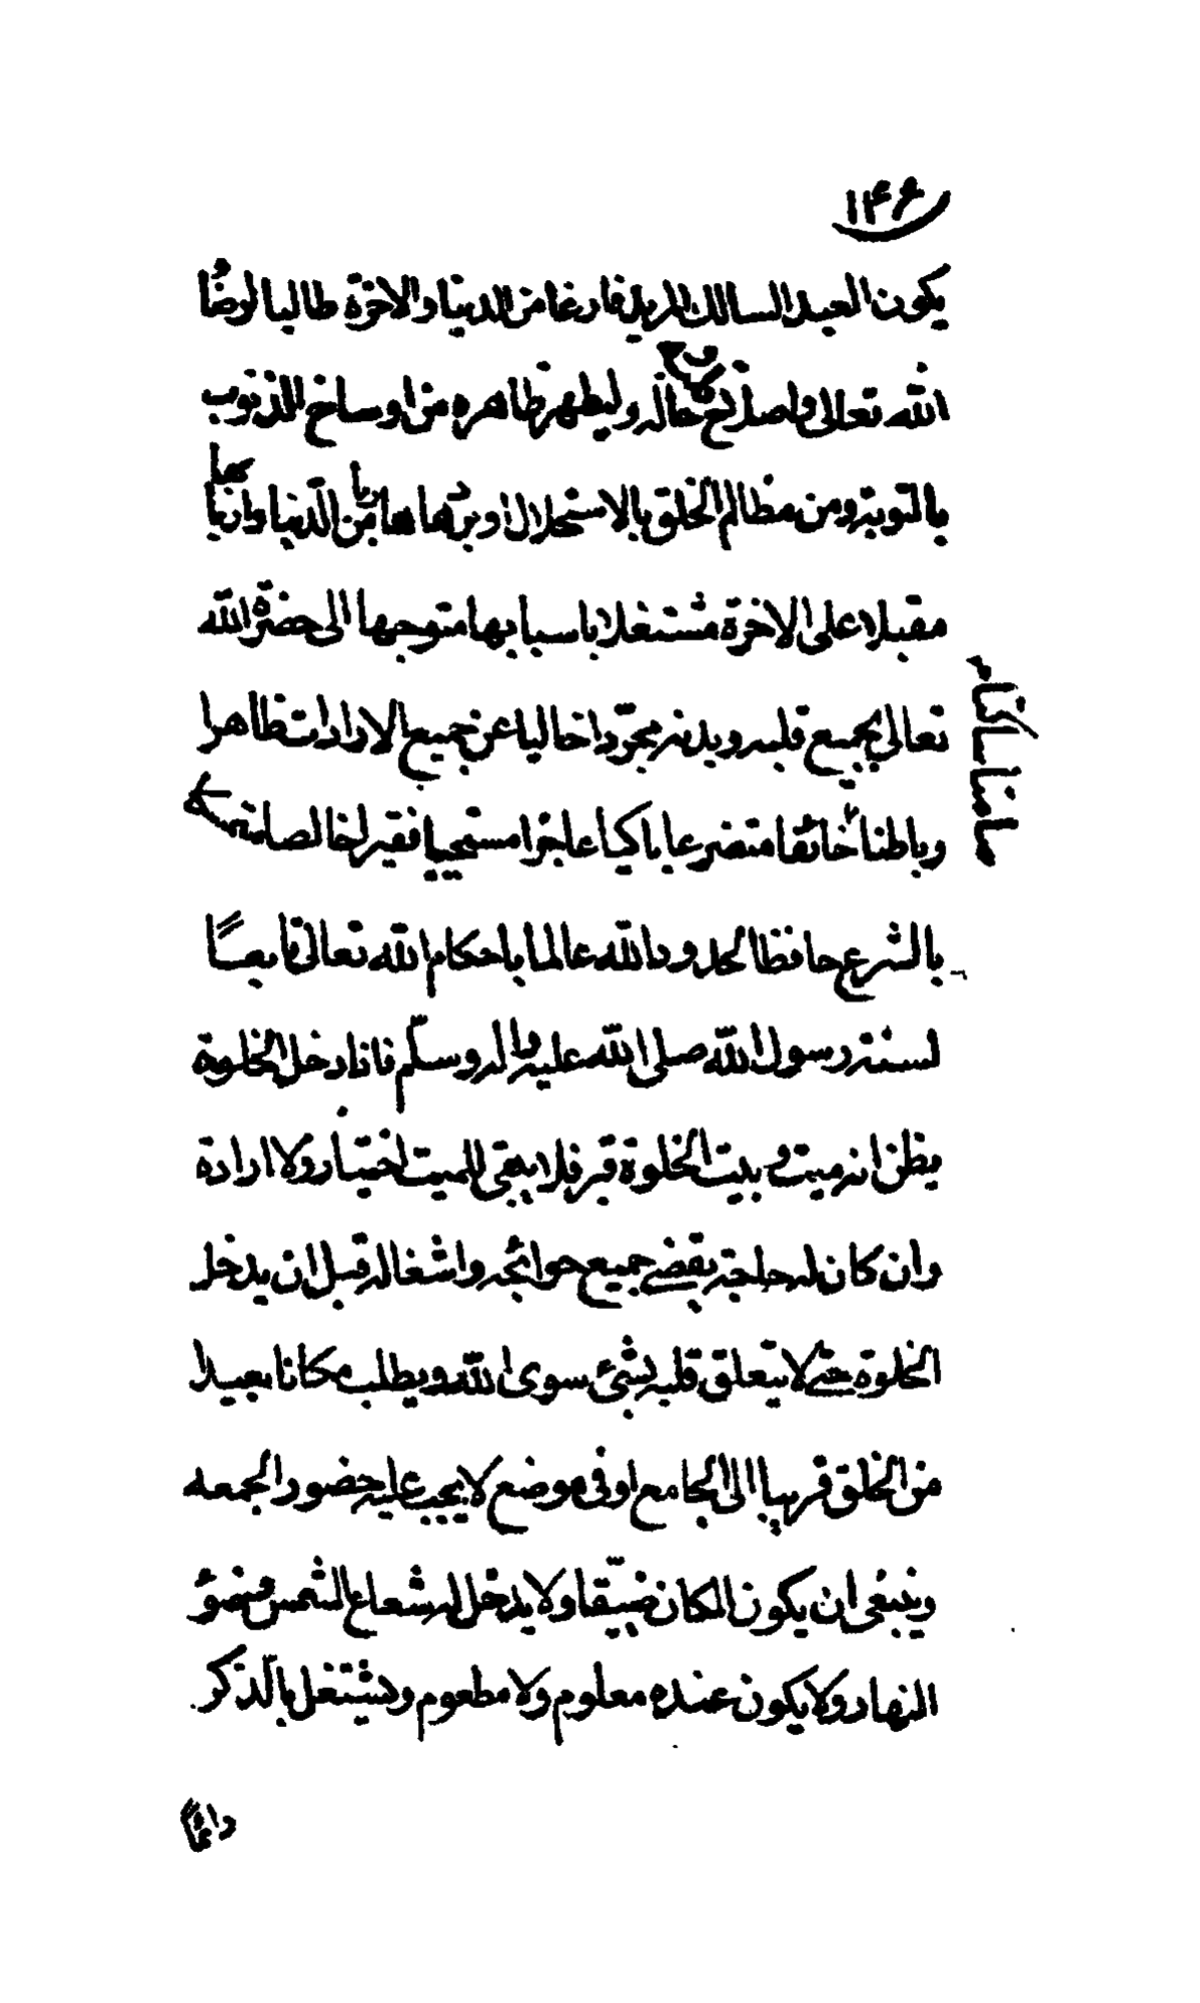 ۱۴۶
يكون العبد السالك المريد فارغا من الدنيا والاخرة طالبا لرضا
الله تعالى واصلاح حاله وليطهر ظاهره من اوساخ الذنوب
بالتوبة ومن مظالم الخلق بالاستحلال او بردها هاربا من الدنيا واربابها
مقبلا على الاخرة مشتغلا باسبابها متوجها الى حضرة الله
تعالى بجميع قلبه وبدنه مجردا خاليا عن جميع الارادات ظاهرا
وباطنا خائفا متضرعا باكيا عاجزا مستحييا فقيرا خالصا
صامتا ساكنا
بالشرع حافظا لحدود الله عالما باحكام الله تعالى تابعًا
لسنة رسول الله صلى الله عليه واله وسلّم فاذا دخل الخلوة
يظن انه ميت وبيت الخلوة قبر فلا يبقى للميت اختيار ولا ارادة
وان كان له حاجة يقضى جميع حوائجه واشغاله قبل ان يدخل
الخلوة حتى لا يتعلق قلبه بشئ سوى الله ويطلب مكانا بعيدا
من الخلق قريبا الى الجامع او فى موضع لا يجب عليه حضور الجمعه
وينبغى ان يكون المكان ضيّقا ولا يدخل له شعاع الشمس وضوؤ
النهار ولا يكون عنده معلوم ولا مطعوم ويشتغل بالذكر
دائمًا